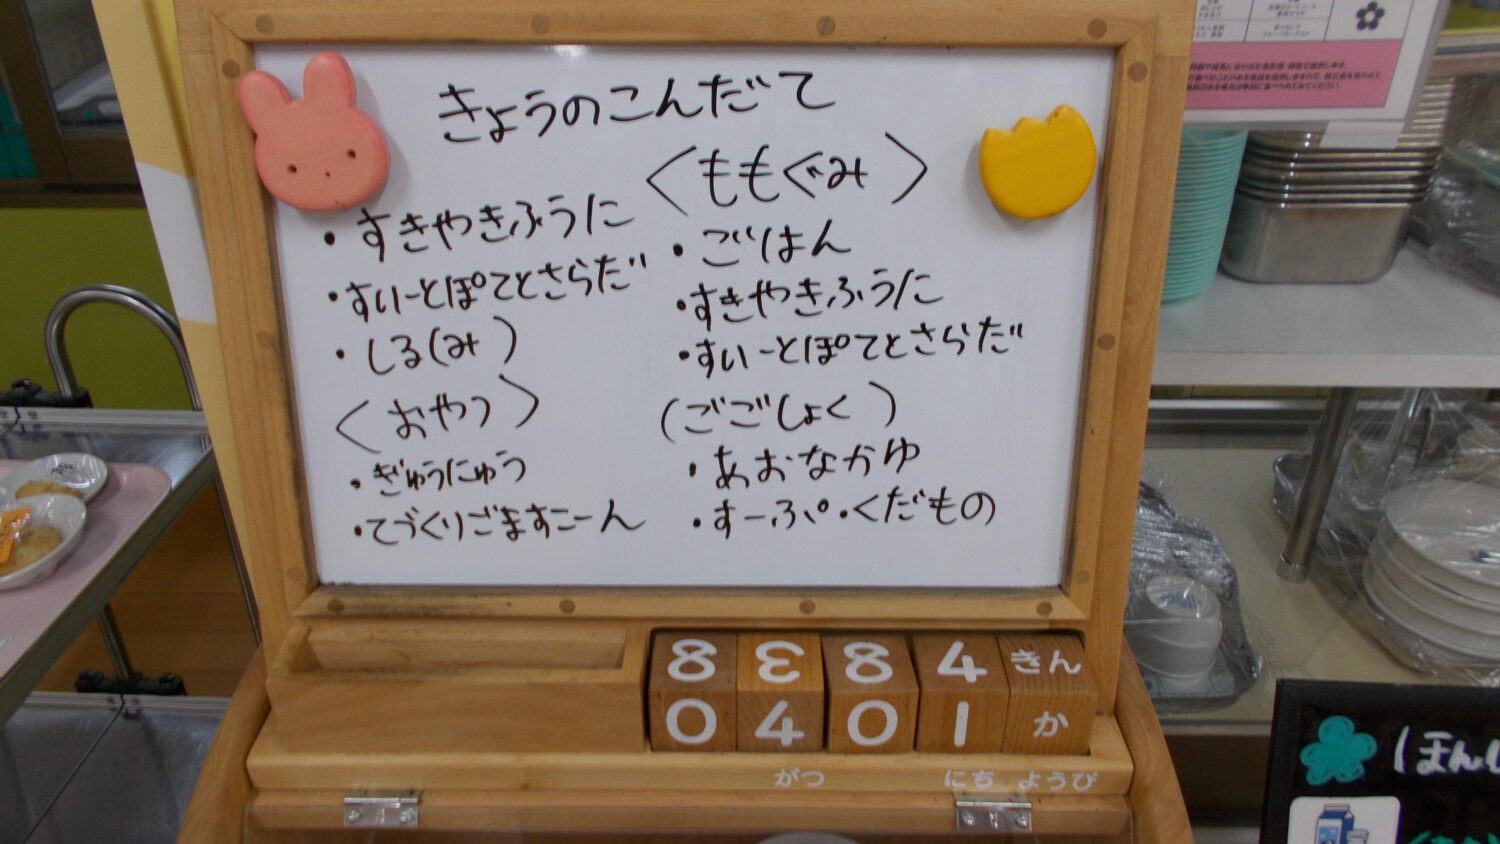 きょうのこんだて
・すきやきふうに
・すいーとぽてとさらだ
・しる(み )
〈おやつ〉
・ぎゅうにゅう
・てづくりごますこーん
〈ももぐみ〉
・ごはん
・すきやきふうに
・すいーとぽてとさらだ
(ごごしょく )
・あおなかゆ
・すーぷ・くだもの
8 3 8 4 きん
0 4 0 1 か
がつ にち ようび